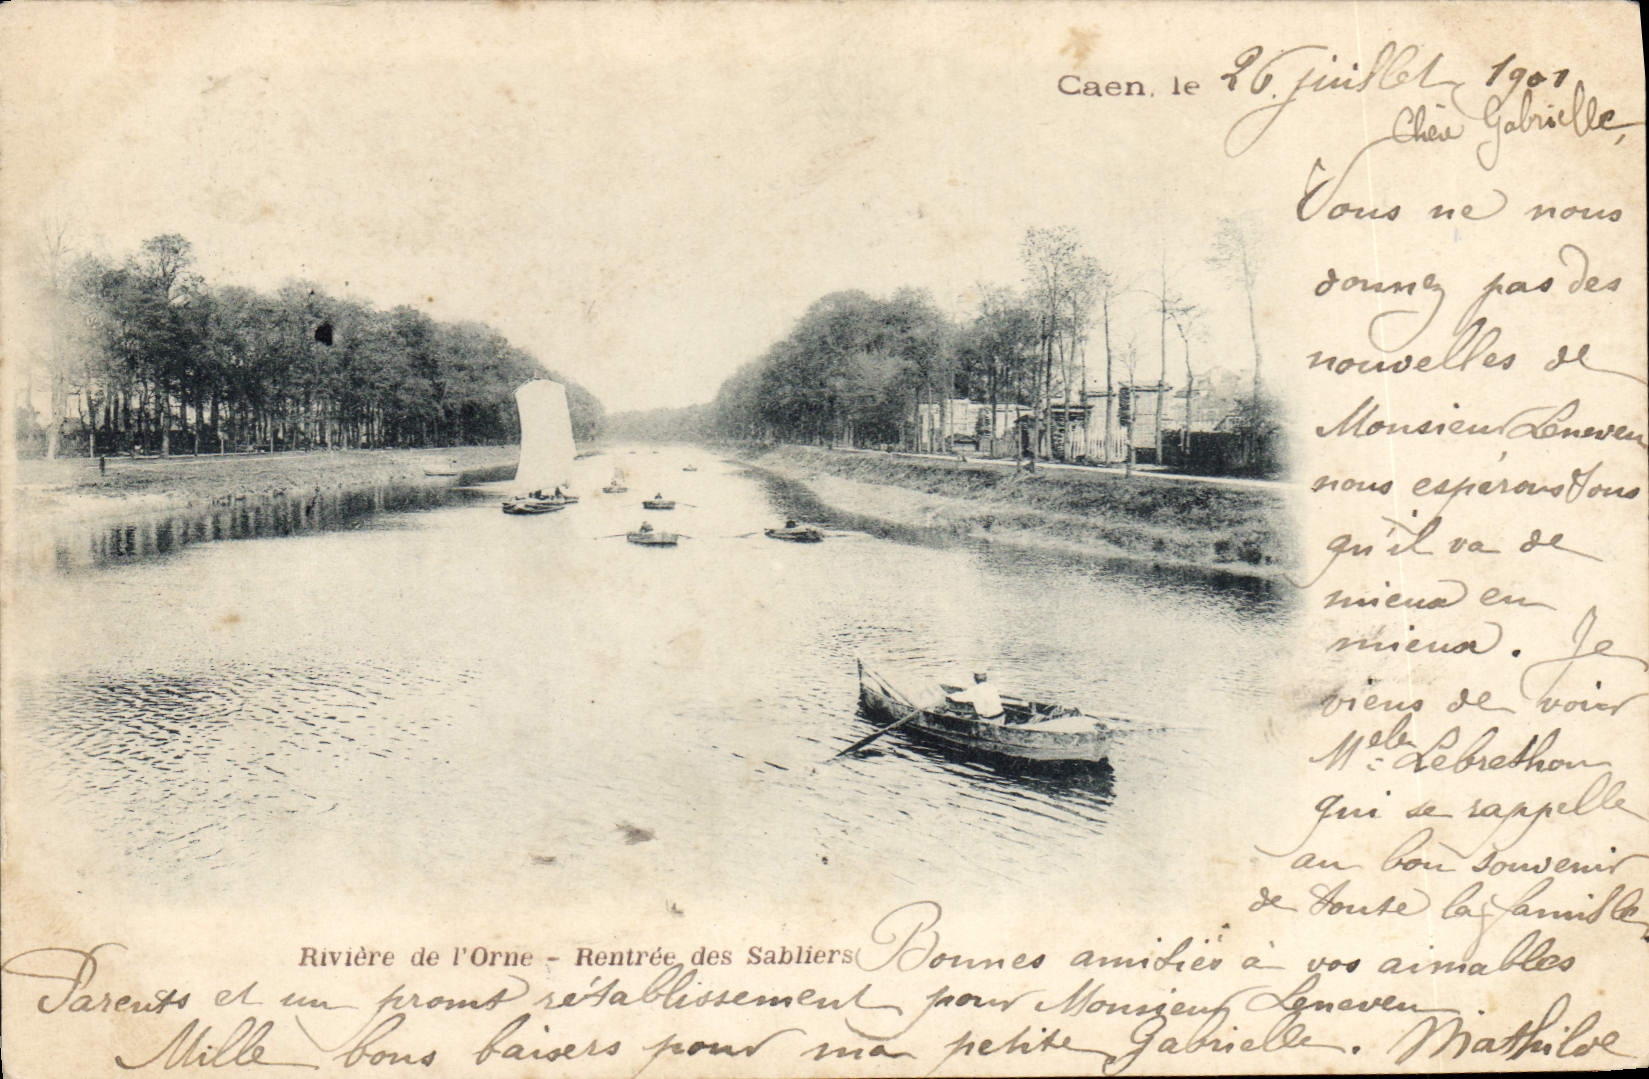 Caen, le 26 juillet 1901
Chère Gabrielle,
Vous ne nous
donnez pas des
nouvelles de
Monsieur Leneveu
nous espérons tous
qu'il va de
mieux en
mieux. Je
viens de voir
Melle Lebrethon
qui se rappelle
au bon souvenir
de toute la famille.
Rivière de l'Orne - Rentrée des Sabliers
Bonnes amitiés à vos aimables
Parents et un promt rétablissement pour Monsieur Leneveu
Mille bons baisers pour ma petite Gabrielle. Mathilde